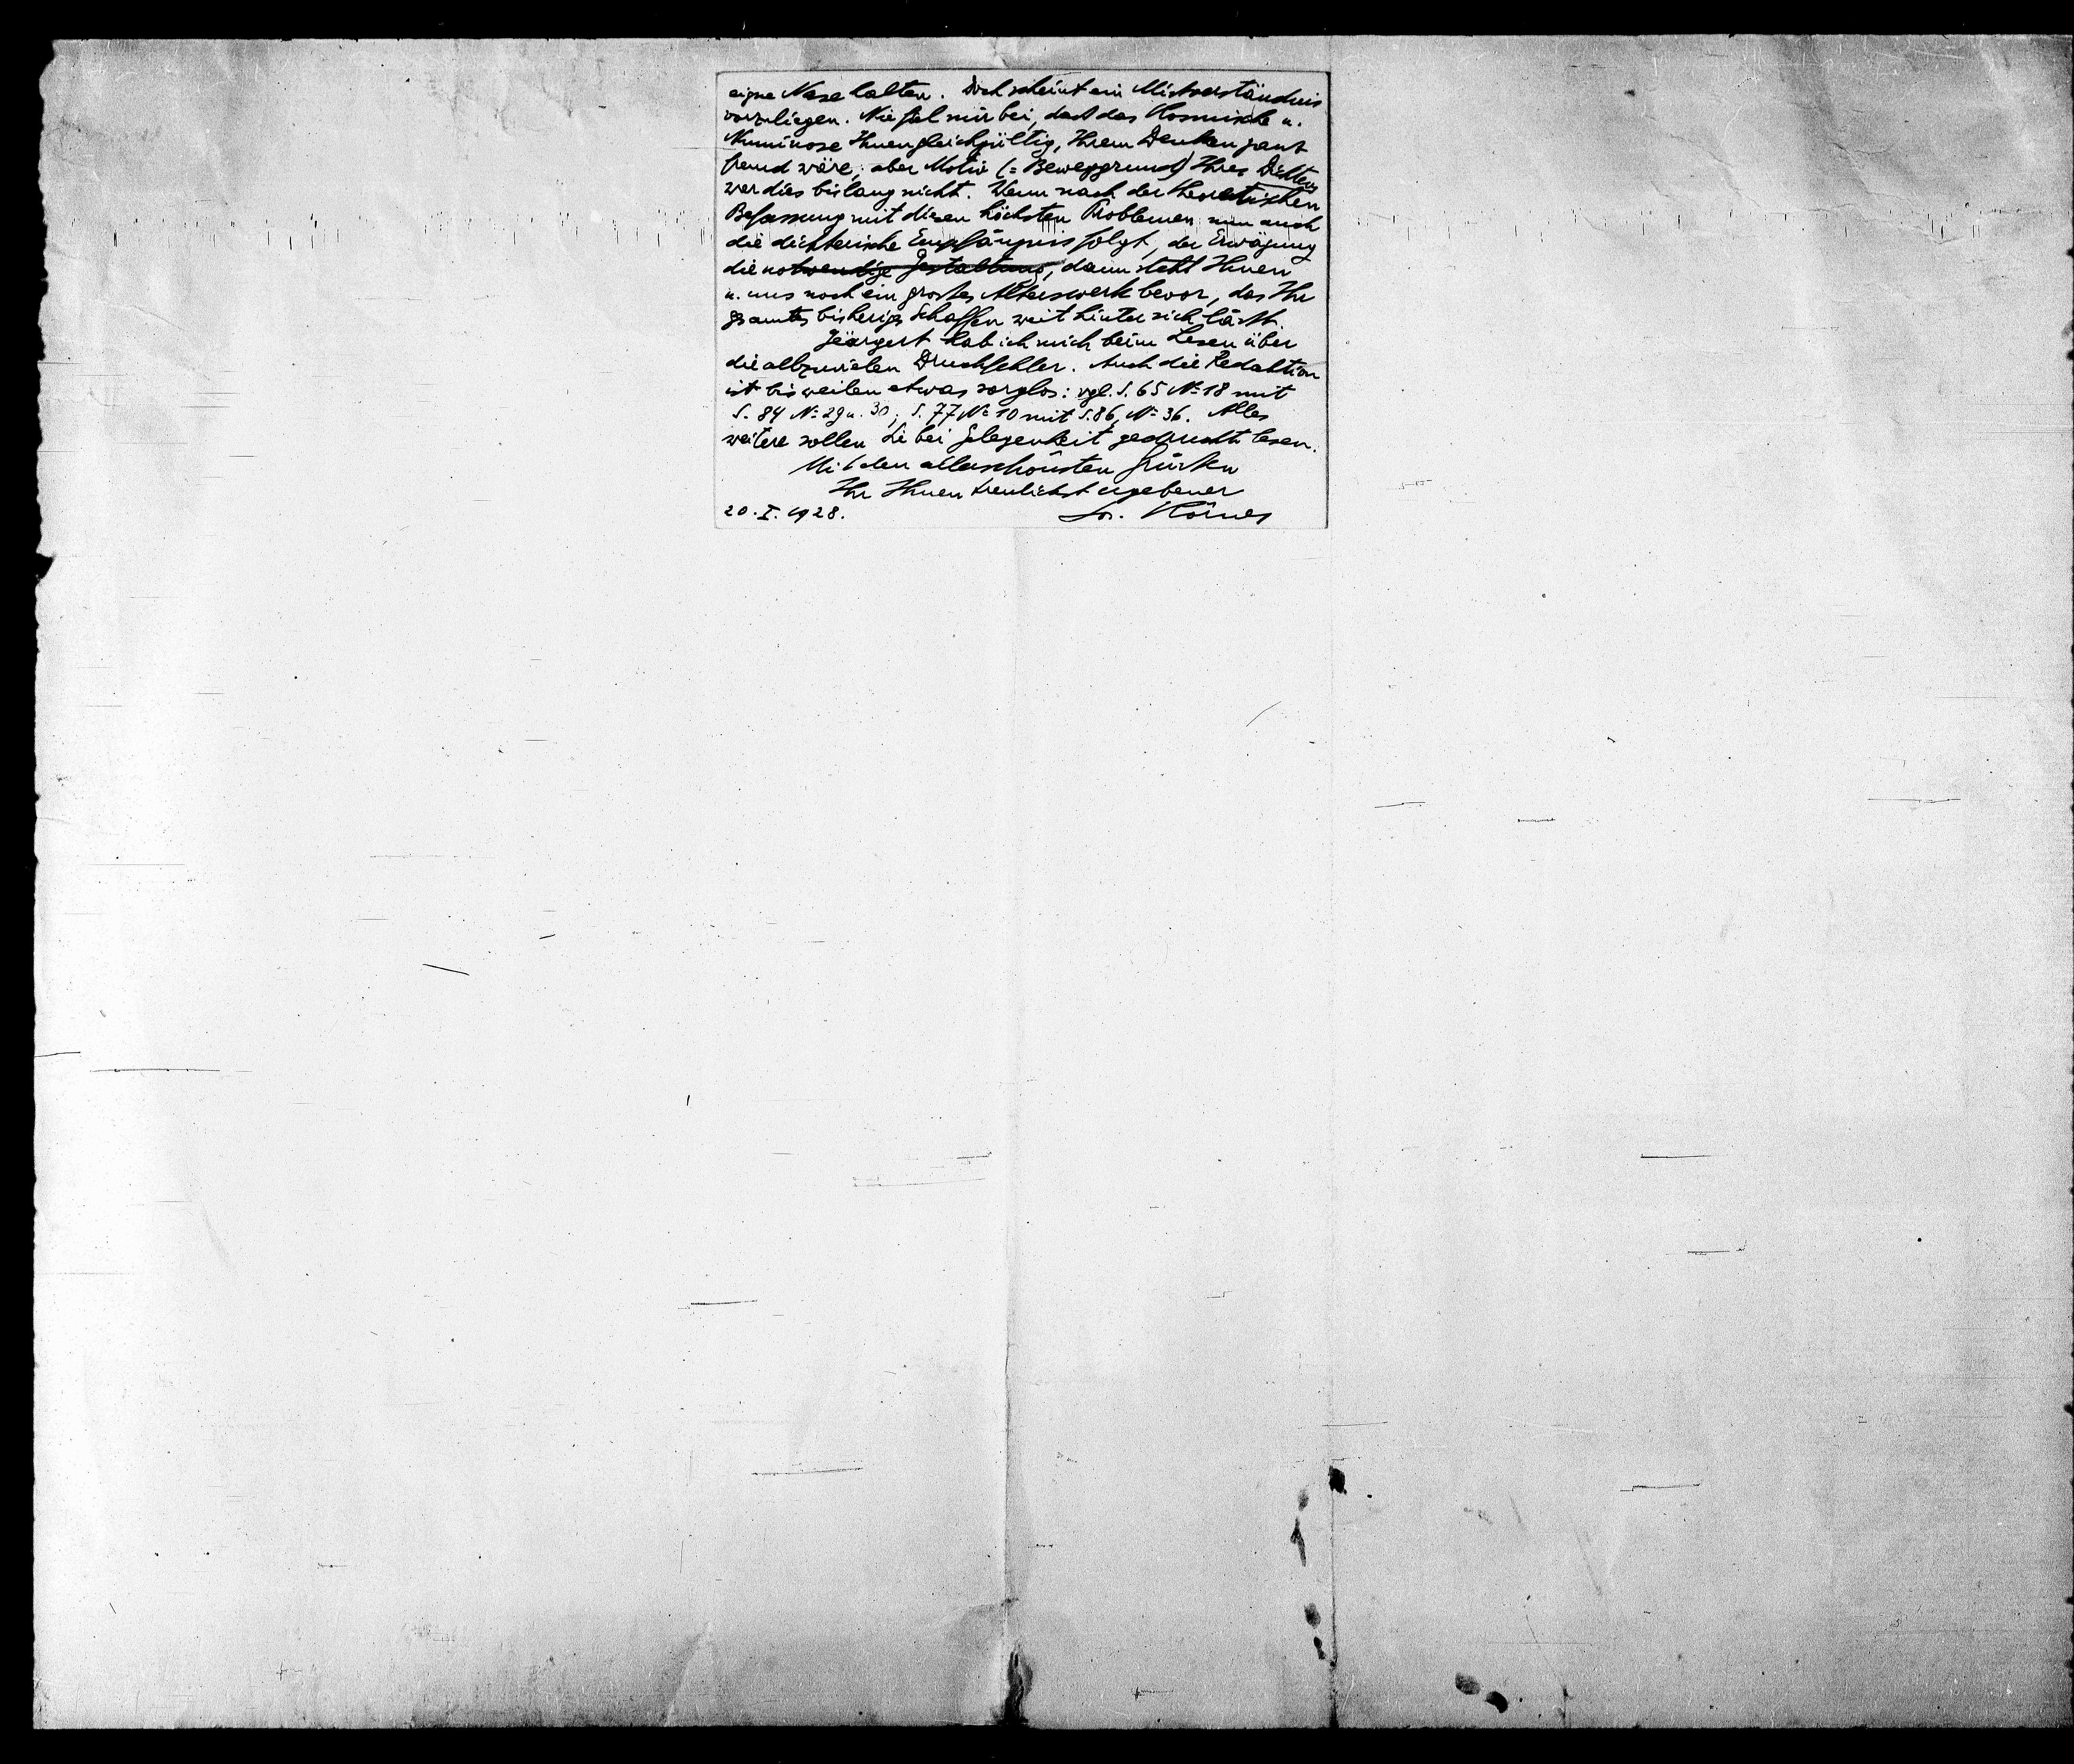 eigne Nase halten. Doch scheint ein Missverständnis
vorzuliegen. Nie fiel mir bei, dass das Kosmische u.
Numinose Ihnen gleichgültig, Ihrem Denken ganz
fremd wäre; aber Motiv (= Beweggrund) Ihres Dichtens
war dies bislang nicht. Wenn nach der theoretischen
Befassung mit diesen höchsten Problemen nun auch
die dichterische Empfängnis folgt, der Erwägung
die notwendige Gestaltung, dann steht Ihnen
u. uns noch ein grosses Alterswerk bevor, das Ihr
gesamtes bisheriges Schaffen weit hinter sich lässt.
Geärgert hab ich mich beim Lesen über
die allzuvielen Druckfehler. Auch die Redaktion
ist bisweilen etwas sorglos: vgl. S. 65 N= 18 mit
S. 84 N= 29 u. 30; S. 77 N= 10 mit S. 86, N= 36. Alles
weitere sollen Sie bei Gelegenheit gedruckt lesen.
Mit den allerschönsten Grüssen
Ihr Ihnen treulichst ergebener
20. I. 1928.